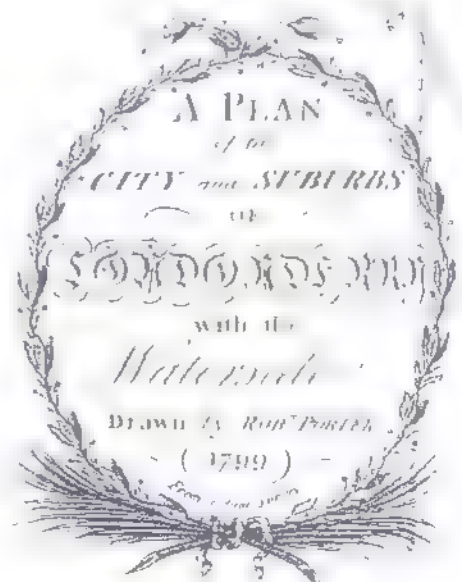 A PLAN
of the
CITY and SUBURBS
OF
LONDONDERRY
with the
Waterside
Drawn by Robt. Porter
(1799)